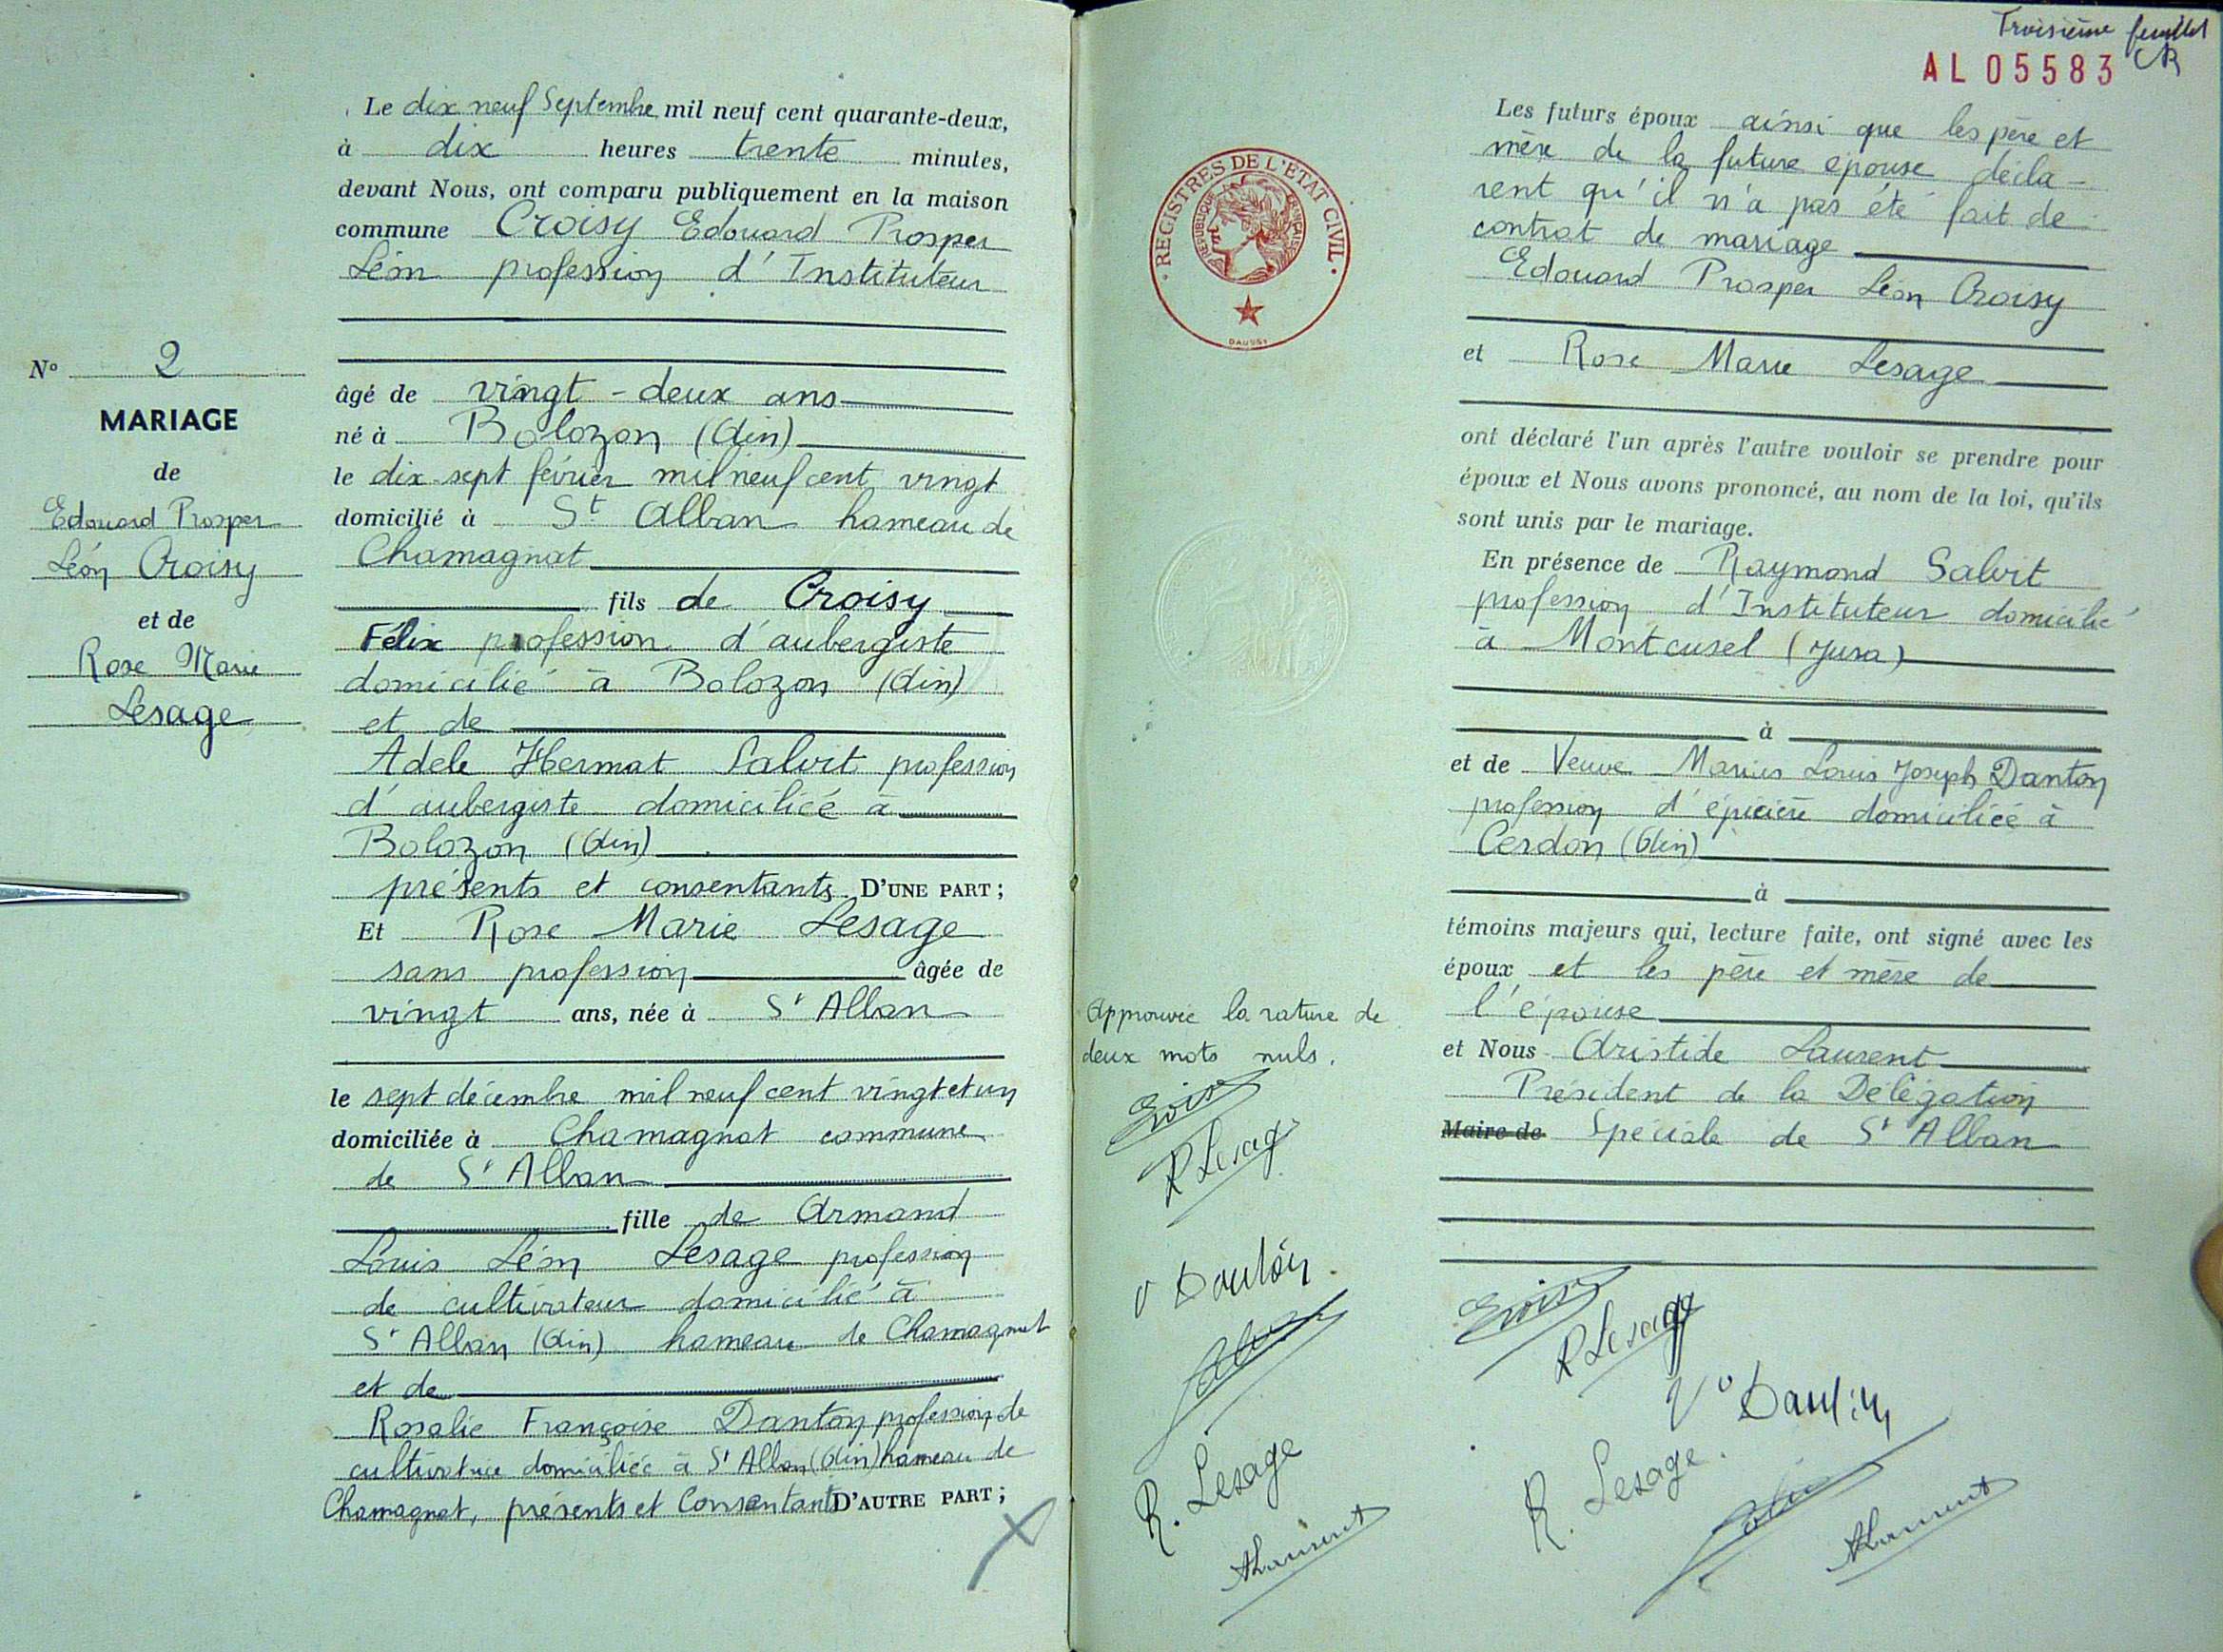 Le dix neuf Septembre mil neuf cent quarante-deux,
à dix heures trente minutes,
devant Nous, ont comparu publiquement en la maison
commune Croisy Edouard Prosper
Léon profession d'Instituteur
N° 2
MARIAGE
de
Edouard Prosper
Léon Croisy
et de
Rose Marie
Lesage
âgé de vingt-deux ans
né à Bolozon (Ain)
le dix-sept février mil neuf cent vingt
domicilié à St Alban hameau de
Chamagnat
fils de Croisy
Félix profession d'aubergiste
domicilié à Bolozon (Ain)
et de
Adele Hermat Salvit profession
d'aubergiste domiciliée à
Bolozon (Ain)
présents et consentants D'UNE PART ;
Et Rose Marie Lesage
sans profession âgée de
vingt ans, née à St Alban
le sept décembre mil neuf cent vingt et un
domiciliée à Chamagnat commune
de St Alban
fille de Armand
Louis Léon Lesage profession
de cultivateur domicilié à
St Alban (Ain) hameau de Chamagnat
et de
Rosalie Françoise Danton profession de
cultivatrice domiciliée à St Alban (Ain) hameau de
Chamagnat, présents et Consentants D'AUTRE PART ;
Troisième feuillet
AL 05583
REGISTRES DE L'ETAT CIVIL
REPUBLIQUE FRANÇAISE
Les futurs époux ainsi que les père et
mère de la future épouse décla-
rent qu'il n'a pas été fait de
contrat de mariage
Edouard Prosper Léon Croisy
et Rose Marie Lesage
ont déclaré l'un après l'autre vouloir se prendre pour
époux et Nous avons prononcé, au nom de la loi, qu'ils
sont unis par le mariage.
En présence de Raymond Salvit
profession d'Instituteur domicilié
à Montcusel (Jura)
à
et de Veuve Marius Louis Joseph Danton
profession d'épicière domiciliée à
Cerdon (Ain)
à
témoins majeurs qui, lecture faite, ont signé avec les
époux et les père et mère de
l'épouse
et Nous Aristide Laurent
Président de la Délégation
Maire de Spéciale de St Alban
Approuvée la rature de
deux mots nuls.
R Lesage
R. Lesage
ALaurent
R Lesage
R. Lesage
ALaurent